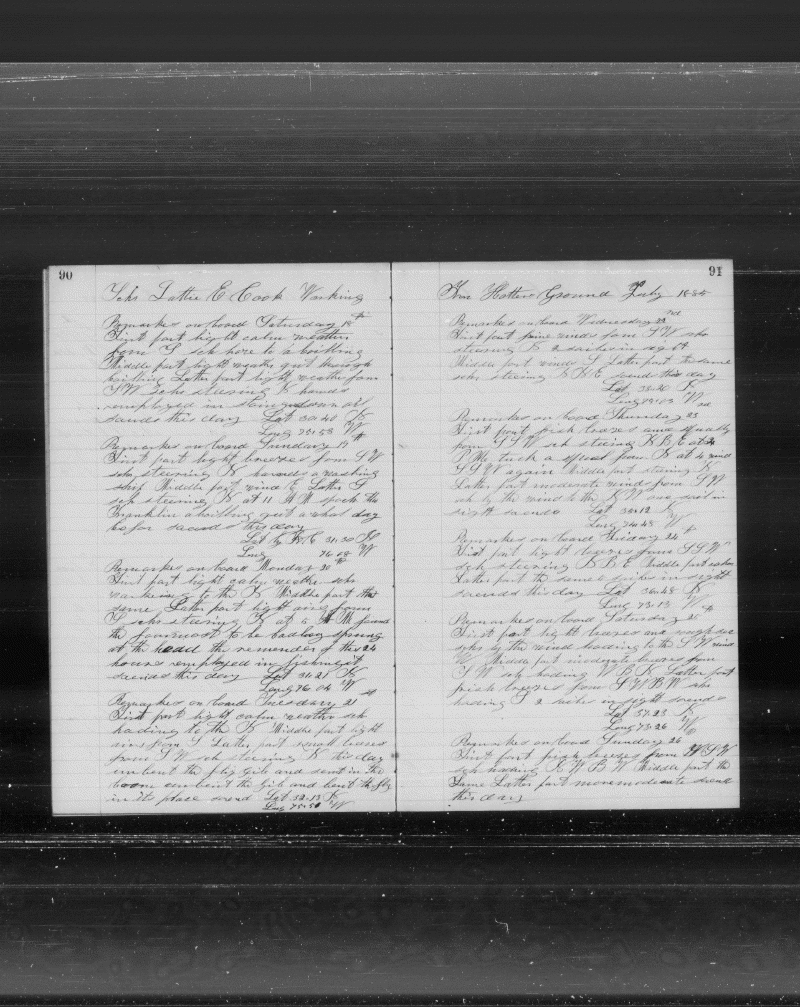 90
Schr Lottie E Cook Working
Remarkes on board Saturday 18th
First part light calm weather
from S sch hove to a boilling
Middle part light weather quit through
boilling Latter part light weather from
SW schr steering N hands
employed in down oil
sounds this day Lat 30-40 N
Long 75-58 W
Remarkes on board Sunday 19th
First part light breezes from SW
sch steering N hands a washing
ship Middle part wind E Latter S
sch steering N at 11 AM spock the
Franklin a boilling quit a what day
be for sounds this day
Lat by 31-30 N
Long 76-08 W
Remarkes on board Monday 20th
First part light calm weather schr
working to the N Middle part the
same Latter part light airs from
S schr steering N at 6 AM found
the formost to be badley sprung
at the head the remender of this 24
houres employed in fishing it
sounds this day Lat 31-21 N
Long 76 04 W
Remarkes on board Tuesday 21st
First part light calm weather sch
hading to the N Middle part light
airs from S Latter part small breses
from SW sch steering N this day
unbent the flig gib and sent in the
boom unbent the gib and bent the flig
in its place sound Lat 32-13 N
Long 75-50 W
91
from Hatters Ground July 1885
Remarkes on board Wednesday 22nd
First part winds from SW schr
steering N 2 sailes in sight
Middle part winds S Latter part the same
schr steering N sound this day
Lat N
Long W
Remarkes on board Thursday 23rd
First part fresh breezes and squally
from SSW sch steering N B E at
PM tuck a squal from N at 4 wind
SSW again Middle part steering N
Latter part moderate wind from SW
sch by the wind to the N W one sail in
sight sounds Lat 36-12 N
Long 74-43 W
Remarkes on board Friday 24th
First part light brezes from SSW
sch steering Middle part calm
Latter part the same in sight
sounds this day Lat 36-48 N
Long 73-13 W
Remarkes on board Saturday 25th
First part light brezes and rough sea
schr by the wind hading to the SW wind
Middle part moderate brezes from
SW sch hading W B N Latter part
frish brezes from SW B W schr
hading S 2 sailes in sight sounds
Lat 37-23 N
Long 73-26 W
Remarkes on board Sunday 26
First part frish brezes from WSW
sch hading N W B W Middle part the
Same Latter part more moderate sound
this day